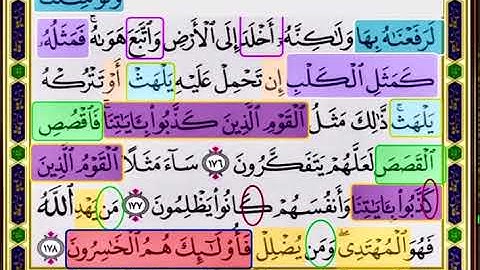 وَلَوْ شِئْنَا
لَرَفَعْنَٰهُ بِهَا وَلَٰكِنَّهُۥٓ أَخْلَدَ إِلَى ٱلْأَرْضِ وَٱتَّبَعَ هَوَىٰهُ ۚ فَمَثَلُهُۥ
كَمَثَلِ ٱلْكَلْبِ إِن تَحْمِلْ عَلَيْهِ يَلْهَثْ أَوْ تَتْرُكْهُ
يَلْهَث ۚ ذَّٰلِكَ مَثَلُ ٱلْقَوْمِ ٱلَّذِينَ كَذَّبُوا۟ بِـَٔايَٰتِنَا ۚ فَٱقْصُصِ
ٱلْقَصَصَ لَعَلَّهُمْ يَتَفَكَّرُونَ ١٧٦ سَآءَ مَثَلًا ٱلْقَوْمُ ٱلَّذِينَ
كَذَّبُوا۟ بِـَٔايَٰتِنَا وَأَنفُسَهُمْ كَانُوا۟ يَظْلِمُونَ ١٧٧ مَن يَهْدِ ٱللَّهُ
فَهُوَ ٱلْمُهْتَدِى ۖ وَمَن يُضْلِلْ فَأُو۟لَٰٓئِكَ هُمُ ٱلْخَٰسِرُونَ ١٧٨